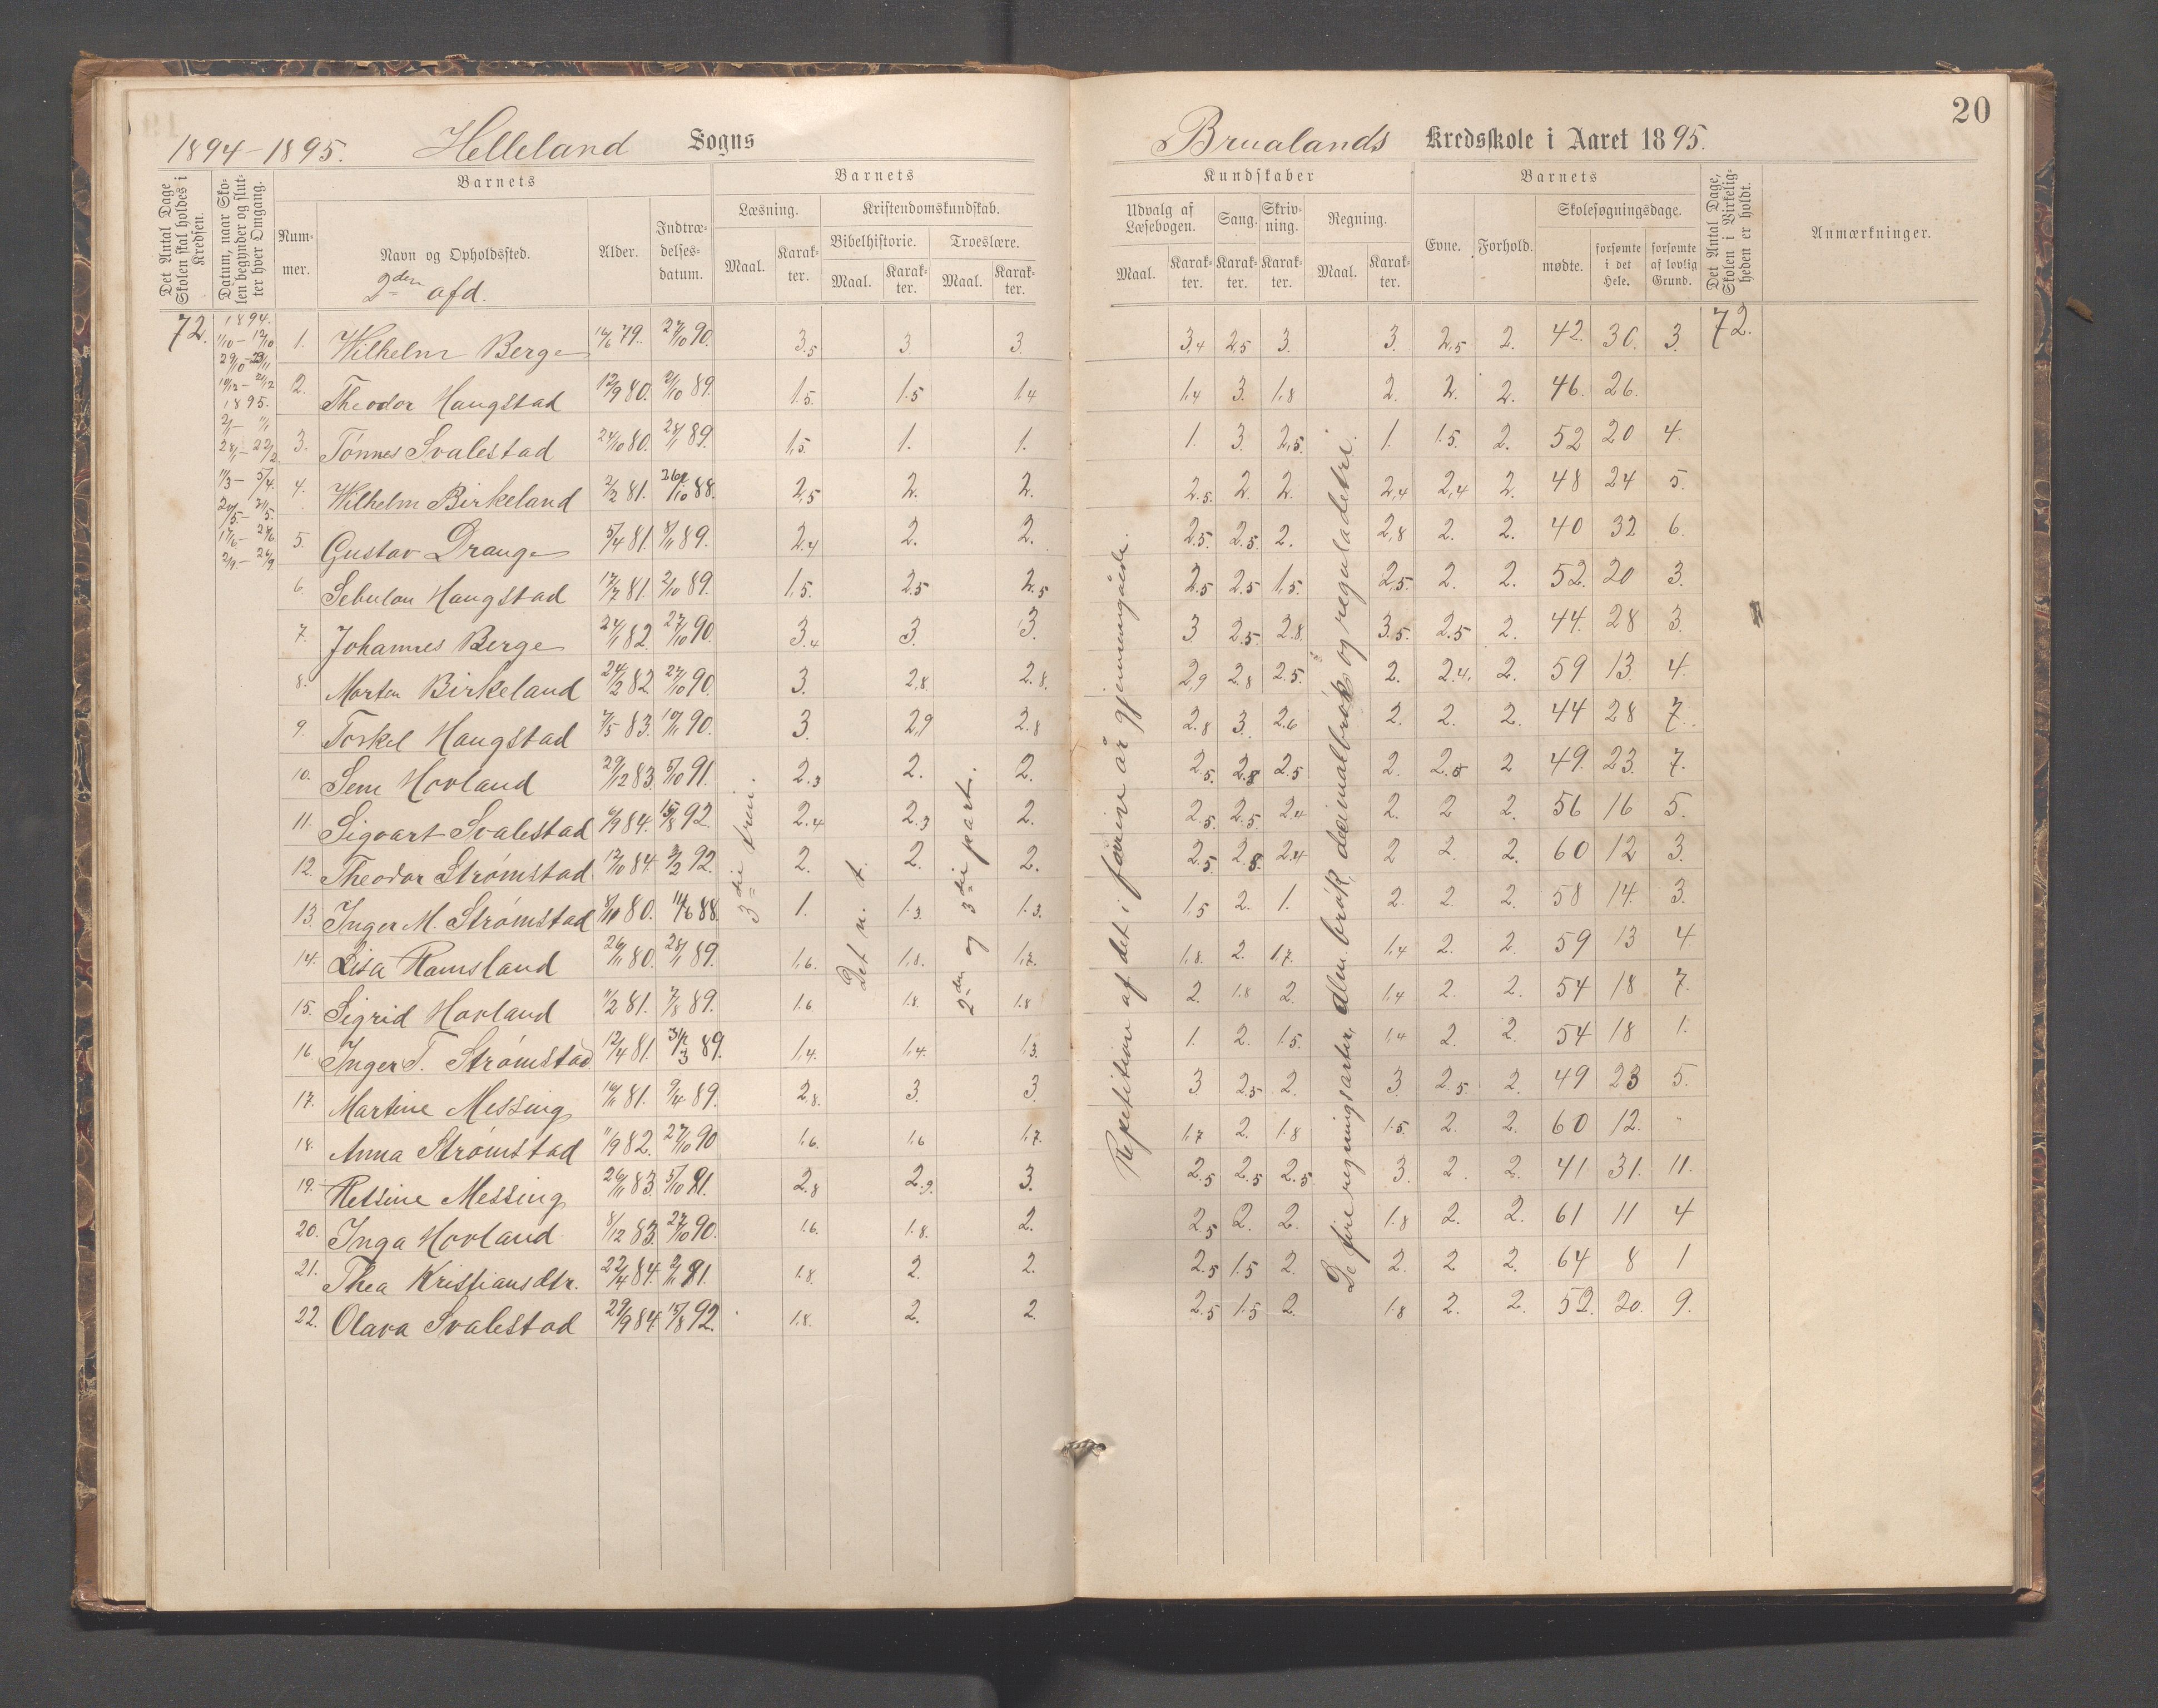 20
1894-1895. Helleland Sogns
Brualands Kredsskole i Aaret 1895.
Det Antal Dage Skolen skal holdes i Kredsen.
Datum, naar Skolen begynder og slutter hver Omgang.
Barnets
Nummer.
Navn og Opholdssted.
2den afd.
Alder.
Indtrædelsesdatum.
Barnets
Læsning.
Kristendomskundskab.
Bibelhistorie. Troeslære.
Maal. Karakter. Maal. Karakter. Maal. Karakter.
Kundskaber
Udvalg af Læsebogen. Sang. Skrivning. Regning.
Maal. Karakter. Karakter. Karakter. Maal. Karakter.
Barnets
Evne. Forhold.
Skolesøgningsdage.
mødte. forsømte i det Hele. forsømte af lovlig Grund.
Det Antal Dage, Skolen i Virkeligheden er holdt.
Anmærkninger.
72.
1894.
1895.
72.
1. Wilhelm Berge 79. 27/10 90. 3.5 3. 3. 3,4 2,5 3. 3. 2,5 2. 42. 30. 3.
2. Theodor Haugstad 12/9 80. 2/10 89. 1.5. 1.5 1.4 1,4 3. 1,8 2. 2. 2. 46. 26.
3. Tønnes Svalestad 24/10 80. 28/1 89. 1,5. 1. 1. 1. 3. 2,5. 1. 1.5. 2. 52 20 4.
4. Wilhelm Birkeland 2/2 81. 88. 2,5 2. 2. 2.5. 2. 2. 2,4 2,4 2. 48 24 5.
5. Gustav Drange 5/4 81. 8/11 89. 2.4 2. 2. 2.5. 2.5. 2. 2,8 2. 2. 40 32 6.
6. Sebulon Haugstad 17/7 81. 2/10 89. 1,5. 2.5 2.5 2.5 2.5 1,5. 2,5. 2. 2. 52. 20 3.
7. Johannes Berge 24/1 82. 27/10 90. 3.4 3. 3. 3 2.5 2.8. 3.5. 2.5 2. 44. 28 3.
8. Morten Birkeland 24/2 82. 27/10 90. 3. 2,8 2.8. 2,9 2.8 2.5. 2. 2.4, 2. 59 13. 4.
9. Torkel Haugstad 7/5 83. 90. 3. 2,9 2.8 2.8 3. 2.6 2. 2. 2. 44 28 7.
10. Sem Hovland 29/12 83. 5/10 91. 2.3 2. 2. 2.5. 2.8 2.5 2. 2.5 2 49. 23. 7.
11. Sigvart Svalestad 6/9 84. 15/8 92. 2.4 2.3 2. 2.5. 2.5. 2.4 2. 2 2. 56 16 5.
12. Theodor Strømstad 12/10 84. 92. 2. 2. 2. 2.5. 2.8. 2.4 2 2. 2. 60 12 3.
13. Inger M. Strømstad 8/10 80. 11/6 88. 1. 1.3. 1.3. 1.5 2. 1. 2. 2. 2. 58 14. 3.
14. Lisa Ramsland 26/11 80. 28/1 89. 1,6. 1,8. 1,7. 1,8. 2. 1,7. 1,4 2. 2. 59 13 4
15. Sigrid Hovland 11/2 81. 7/8 89. 1.6 1.8. 1.8 2. 1.8 2. 1,4 2. 2. 54 18 7.
16 Inger T. Strømstad 12/4 81. 89. 1,4. 1,4. 1,3. 1. 2. 1.5. 1,4 2. 2. 54 18 1.
17. Martine Messing 81. 9/4 89. 2,8. 3. 3. 3 2.5 2. 3 2.5. 2. 49 23 5.
18. Anna Strømstad 11/9 82. 27/10 90 1,6. 1,6 1,7. 1,7 2. 1.8 1.5. 2. 2. 60 12. -
19. Ressine Messing 26/11 83. 5/10 91. 2.8 2.9. 3. 2.5 2.5 2.5 3. 2. 2. 41 31. 11.
20. Inga Hovland 8/12 83. 27/10 90. 1.6. 1.8. 2. 2.5 2. 2. 1.8 2. 2. 61 11 4
21. Thea Kristiansdtr. 22/4 84. 91. 1.8. 2. 2. 2.5 1.5 2. 2. 2 2. 64 8 1
22. Olava Svalestad 29/9 84. 15/8 92. 1.8. 2. 2. 2.5 1.5 2. 1.8 2. 2. 52. 20. 9.
3die trin.
Det n. t.
2den og 3die part.
Repetition af det i forrige år gjennemgåede.
De fire regningsarter, alm. brøk, decimalbrøk og reguladetri.